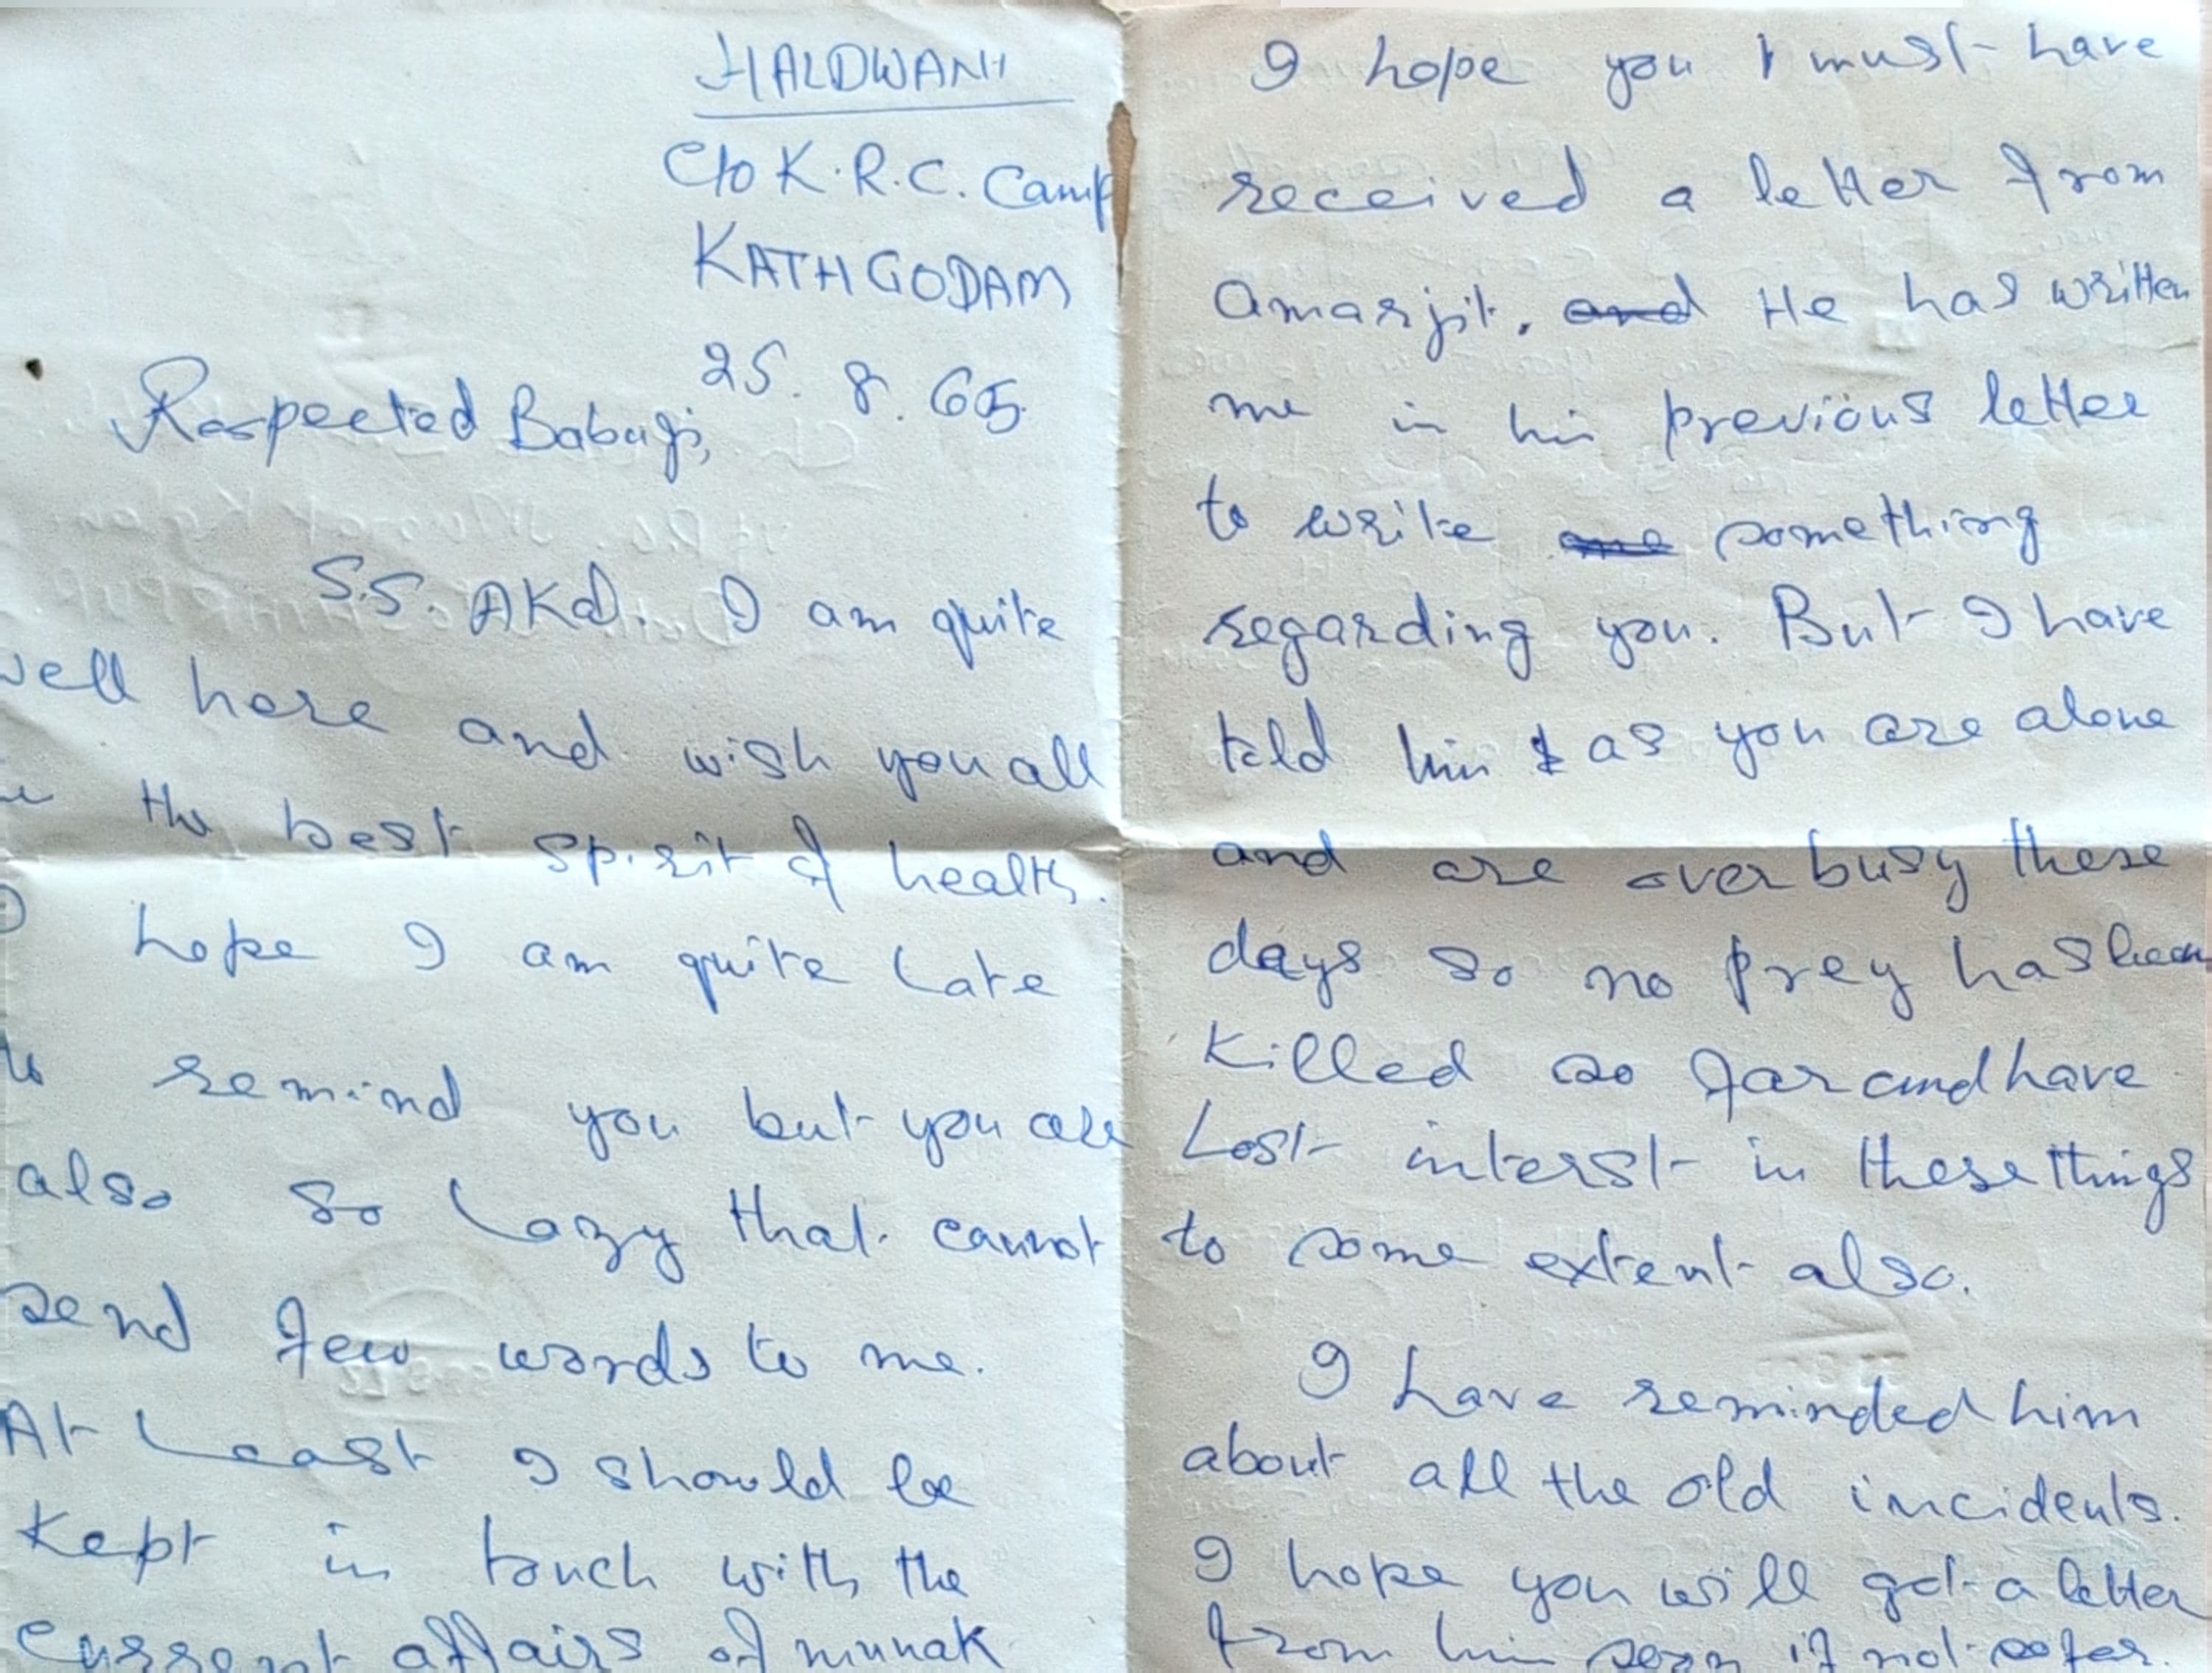 HALDWANI
C/o K.R.C. Camp
KATHGODAM
25.8.65
Respected Babuji,
S.S. AKal. I am quite
well here and wish you all
in the best spirit of health.
I hope I am quite late
to remind you but you are
also so lazy that cannot
send few words to me.
At least I should be
kept in touch with the
current affairs of munak
I hope you must have
received a letter from
Amarjit. and He has written
me in his previous letter
to write me something
regarding you. But I have
told him as you are alone
and are over busy these
days so no prey has been
killed so far and have
Lost interst in these things
to some extent also.
I have reminded him
about all the old incidents.
I hope you will get a letter
from him soon if not so far.